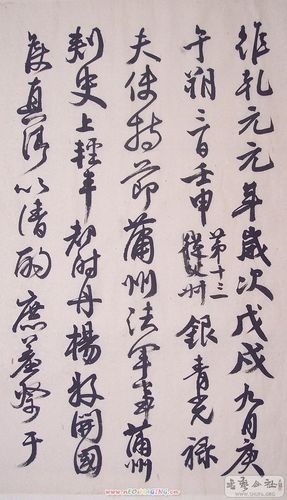 維乾元元年歲次戊戌九月庚
午朔三日壬申第十三銀青光祿
夫使持節蒲州諸軍事蒲州
刺史上輕車都尉丹楊縣開國
侯真卿以清酌庶羞祭于
www.nEOiMAGING.cn
书艺公社